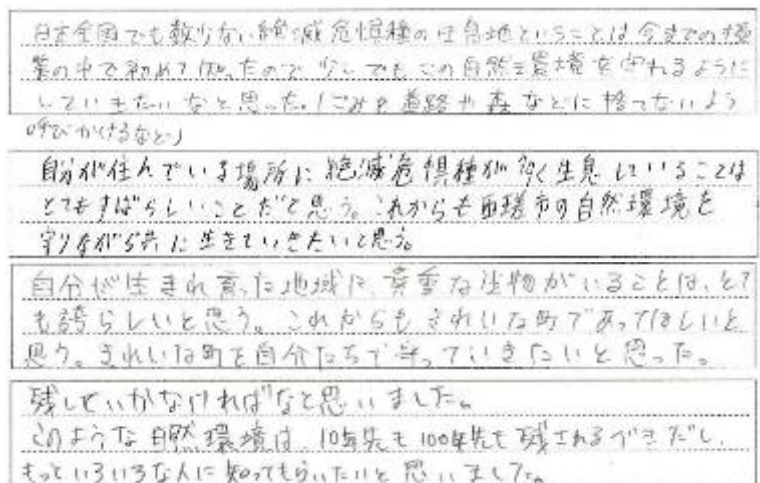 日本全国でも数少ない絶滅危惧種の生息地ということは今までの授
業の中で初めて知ったので少しでもこの自然環境を守れるように
していきたいなと思った。(ごみを道路や森などに捨てないよう
呼びかけるなど)
自分が住んでいる場所に絶滅危惧種が多く生息していることは
とてもすばらしいことだと思う。これからも西諸市の自然環境を
守りながら共に生きていきたいと思う。
自分が生まれ育った地域に、貴重な生物がいることは、とて
も誇らしいと思う。これからもきれいな町であってほしいと
思う。きれいな町を自分たちで守っていきたいと思った。
残していかなければなと思いました。
このような自然環境は、10年先も100年先も残されるべきだし、
もっといろいろな人に知ってもらいたいと思いました。